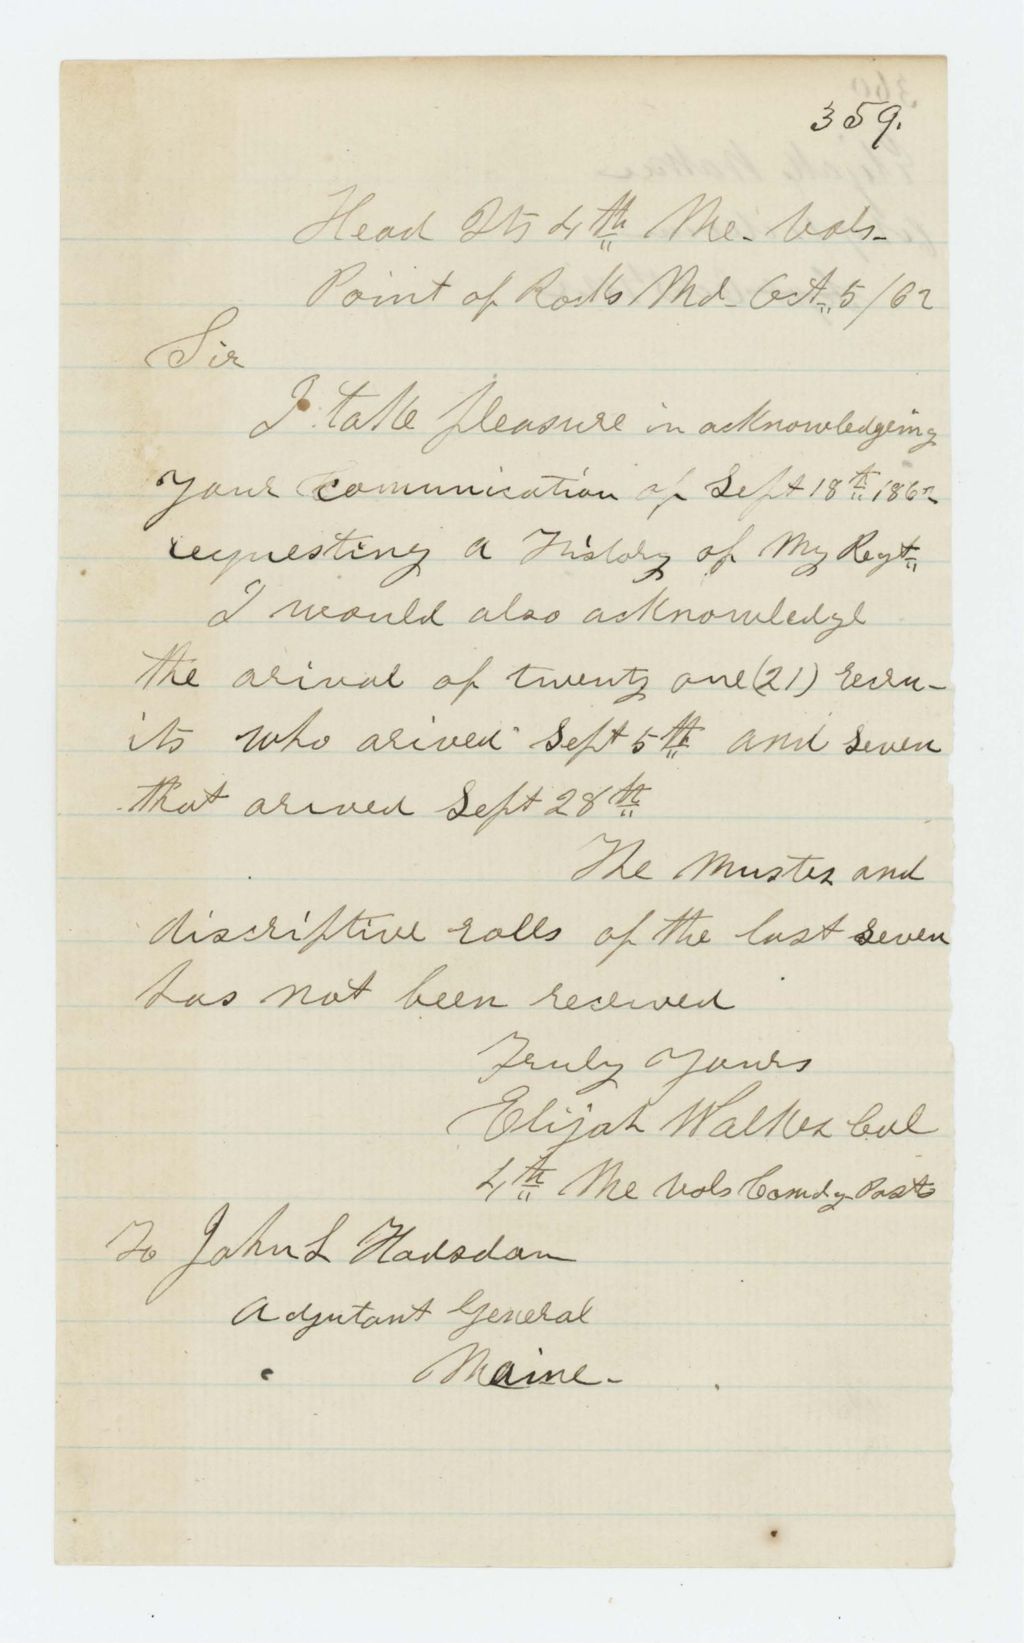 359.
Head Qts 4th Me. Vols.
Point of Rocks Md. Oct. 5/62
Sir
I take pleasure in acknowledgeing
your communication of Sept 18th 1862
requesting a History of My Regt.
I would also acknowledge
the arival of twenty one (21) recru-
its who arived Sept 5th and seven
that arived Sept 28th
The Muster and
discriptive rolls of the last seven
has not been received
Truly Yours
Elijah Walker Col
4th Me Vols Comdg Post
To John L Hodsdon
Adjutant General
Maine.